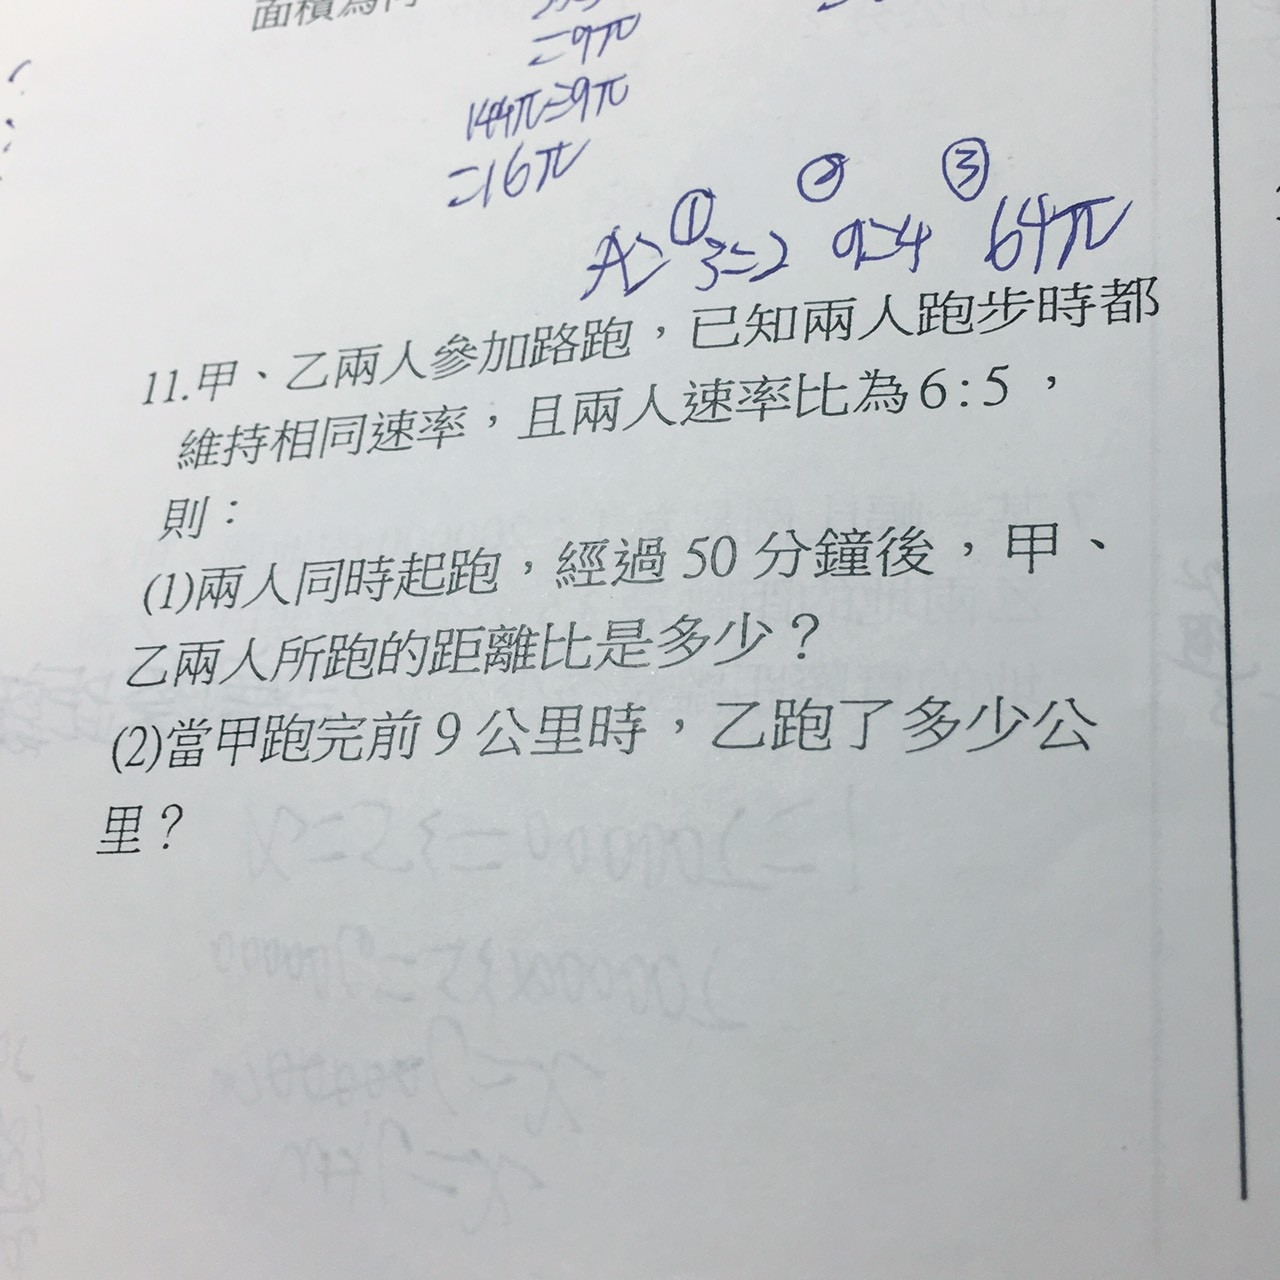 面積為何
=9π
144π=9π
=16π
① ② ③
A= 3=2 9=4 64π
11.甲、乙兩人參加路跑，已知兩人跑步時都
維持相同速率，且兩人速率比為6:5，
則：
(1)兩人同時起跑，經過50分鐘後，甲、
乙兩人所跑的距離比是多少？
(2)當甲跑完前9公里時，乙跑了多少公
里？